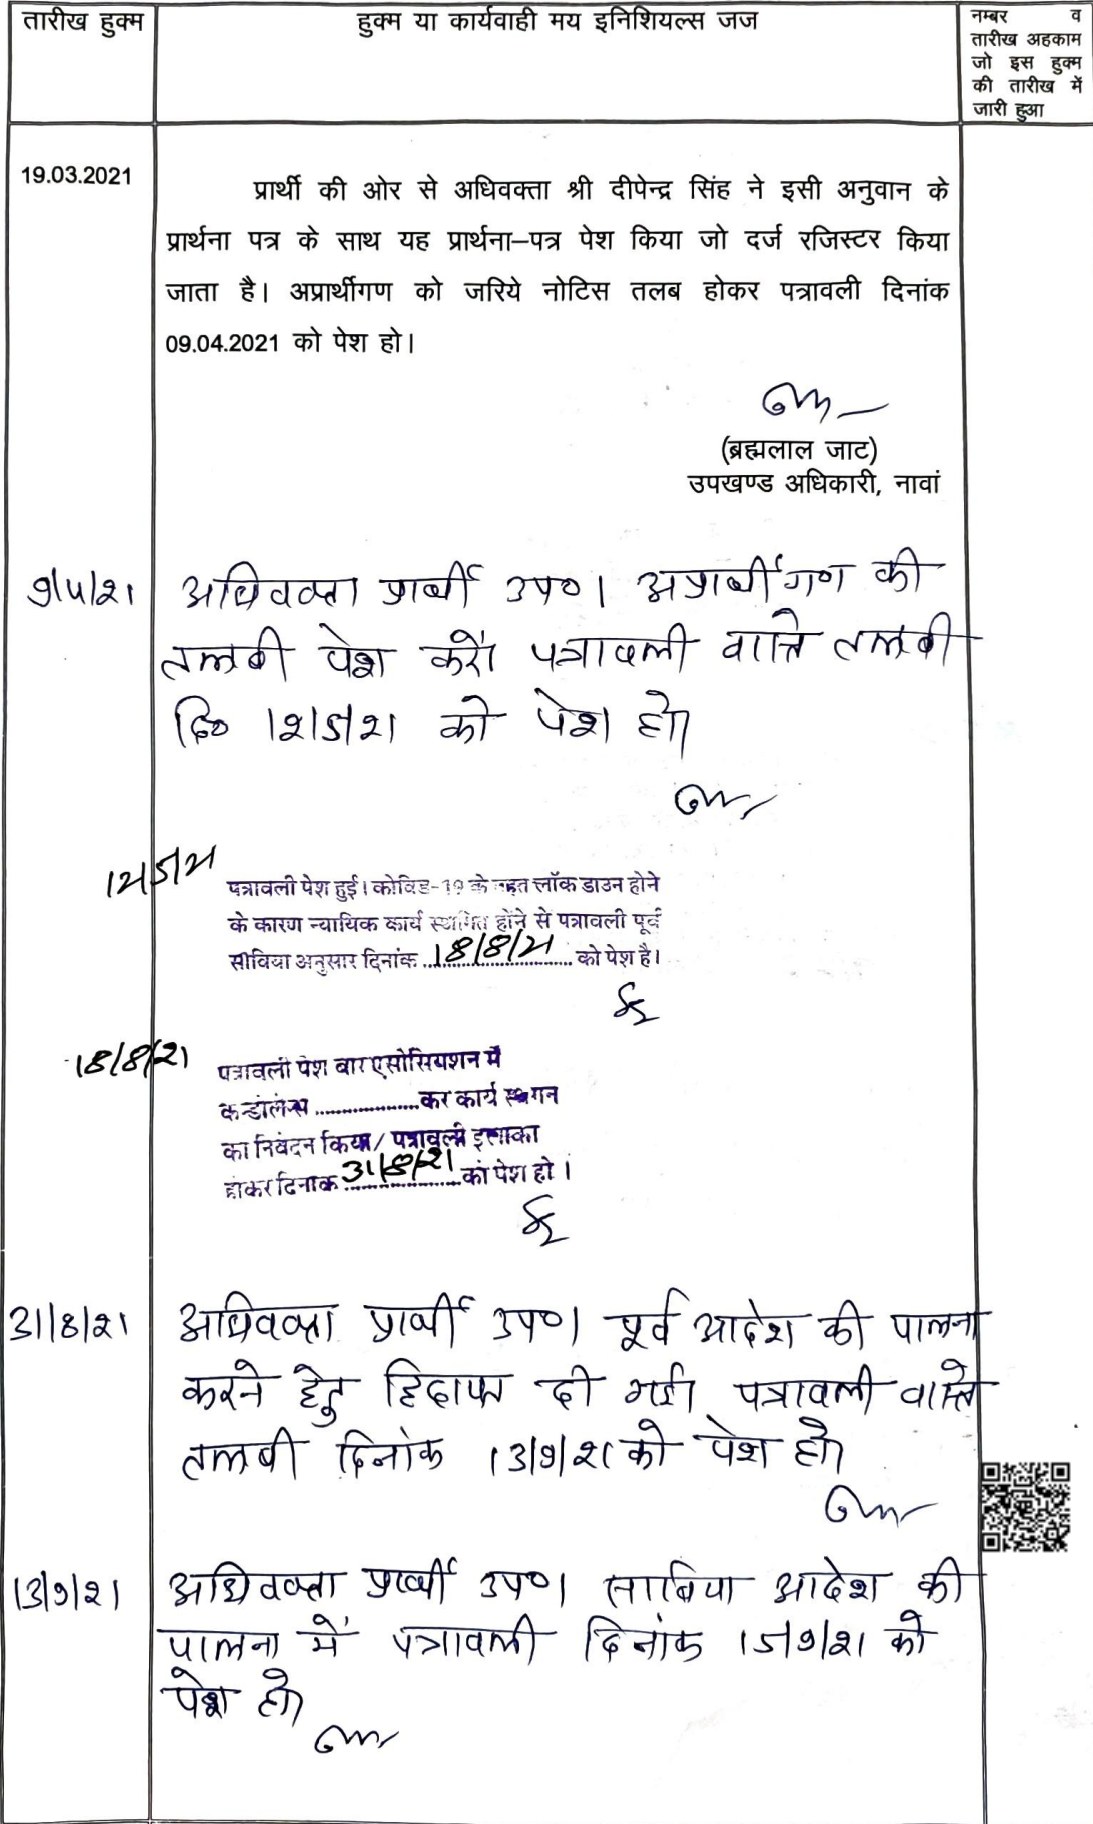 तारीख हुक्म
हुक्म या कार्यवाही मय इनिशियल्स जज
नम्बर व
तारीख अहकाम
जो इस हुक्म
की तारीख में
जारी हुआ
19.03.2021
प्रार्थी की ओर से अधिवक्ता श्री दीपेन्द्र सिंह ने इसी अनुवान के
प्रार्थना पत्र के साथ यह प्रार्थना–पत्र पेश किया जो दर्ज रजिस्टर किया
जाता है। अप्रार्थीगण को जरिये नोटिस तलब होकर पत्रावली दिनांक
09.04.2021 को पेश हो।
(ब्रह्मलाल जाट)
उपखण्ड अधिकारी, नावां
9/4/21 अधिवक्ता प्रार्थी उप०। अप्रार्थीगण की
तलबी पेश करें। पत्रावली वास्ते तलबी
दि० 12/5/21 को पेश हो।
12/5/21
पत्रावली पेश हुई। कोविड-19 के तहत लॉक डाउन होने
के कारण न्यायिक कार्य स्थगित होने से पत्रावली पूर्व
अनुसार दिनांक 18/8/21 को पेश है।
18/8/21
पत्रावली पेश बार एसोसियशन में
कन्डोलेन्स ............ कर कार्य स्थगन
का निवेदन किया/पत्रावली इलाका
होकर दिनांक 31/8/21 को पेश हो।
31/8/21 अधिवक्ता प्रार्थी उप०। पूर्व आदेश की पालना
करने हेतु हिदायत दी गई। पत्रावली वास्ते
तलबी दिनांक 13/9/21 को पेश हो।
13/9/21 अधिवक्ता प्रार्थी उप०। साबिया आदेश की
पालना में पत्रावली दिनांक 15/9/21 को
पेश हो।